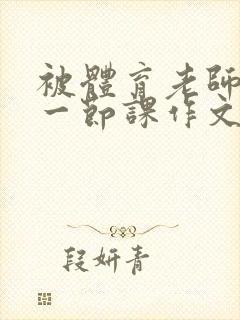 被體育老師
一節課作文
段妍青